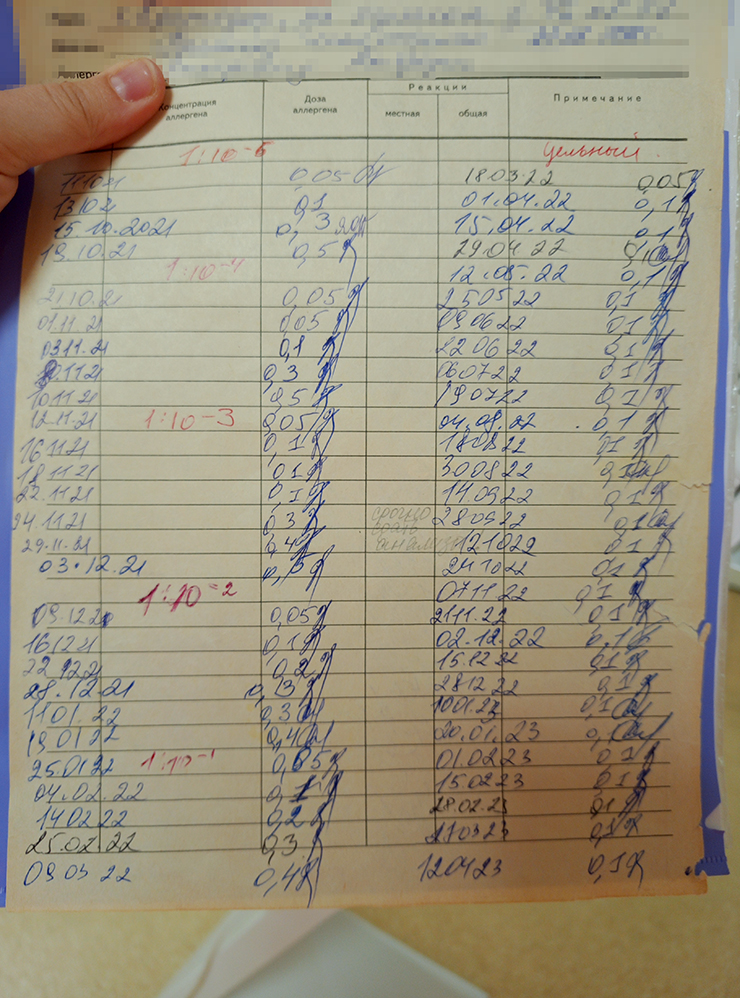 Реакции
Концентрация аллергена Доза аллергена местная общая Примечание
1:10-5 Цельный
11.10.21 0,05 18.03.22 0,05
13.10.21 0,1 01.04.22 0,1
15.10.2021 0,3 15.04.22 0,1
19.10.21 0,5 29.04.22
1:10-4 12.05.22 0,1
21.10.2 0,05 25.05.22 0,1
01.11.21 0,05 09.06.22 0,1
03.11.21 0,1 22.06.22 0,1
11.21 0,3 06.07.22 0,1
10.11.21 0,5 19.07.22 0,1
12.11.21 1:10-3 0,05 04.08.22 0,1
16.11.21 0,1 18.08.22 0,1
18.11.21 0,1 30.08.22 0,1
22.11.21 0,1 14.09.22 0,1
24.11.21 0,3 срочно 28.09.22 0,1
29.11.21 0,4 анализы 12.10.22 0,1
03.12.21 24.10.22 0,1
1:10-2 07.11.22 0,1
09.12.2 0,05 21.11.22 0,1
16.12.21 0,1 02.12.22 0,1
22.12.21 0,2 15.12.22 0,1
28.12.21 0,3 28.12.22 0,1
11.01.22 0,3 10.01.23 0,1
19.01.22 0,4 20.01.23 0,1
25.01.22 1:10-1 0,05 01.02.23 0,1
04.02.22 0,1 15.02.23 0,1
14.02.22 0,2 28.02.23 0,1
25.02.22 0,3 03.23 0,1
09.03.22 0,4 12.04.23 0,1